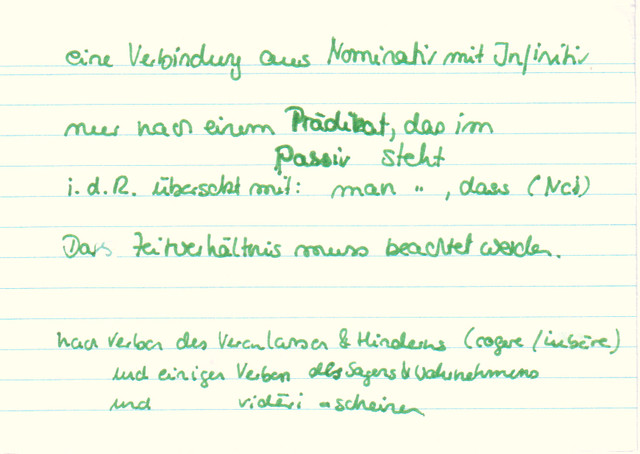 eine Verbindung aus Nominativ mit Infinitiv
nur nach einem Prädikat, das im
Passiv steht
i. d. R. übersetzt mit: man "" , dass (NcI)
Das Zeitverhältnis muss beachtet werden.
nach Verben des Veranlassen & Hinderns (cogere / iubēre)
und einigen Verben des Sagens & Wahrnehmens
und vidēri = scheinen